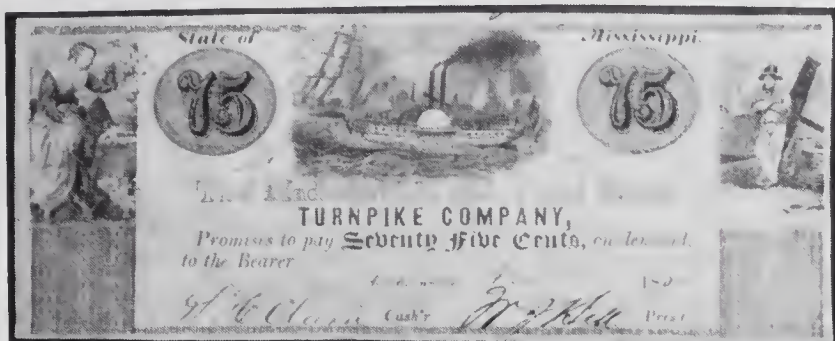 State of Mississippi.
75 75
TURNPIKE COMPANY,
Promises to pay Seventy Five Cents, on demand,
to the Bearer
Cash'r Prest